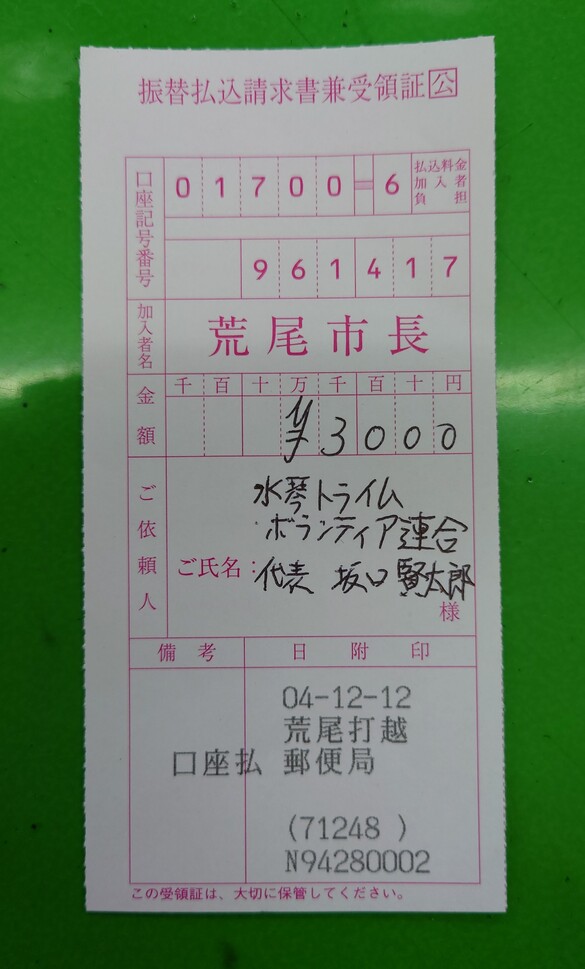 振替払込請求書兼受領証 公
口座記号番号
01700=6
払込料金
加入者
負担
961417
加入者名
荒尾市長
金額
千百十万千百十円
¥3000
ご依頼人
水琴トライム
ボランティア連合
ご氏名:代表 坂口賢太郎
様
備考
日附印
04-12-12
荒尾打越
口座払 郵便局
(71248 )
N94280002
この受領証は、大切に保管してください。